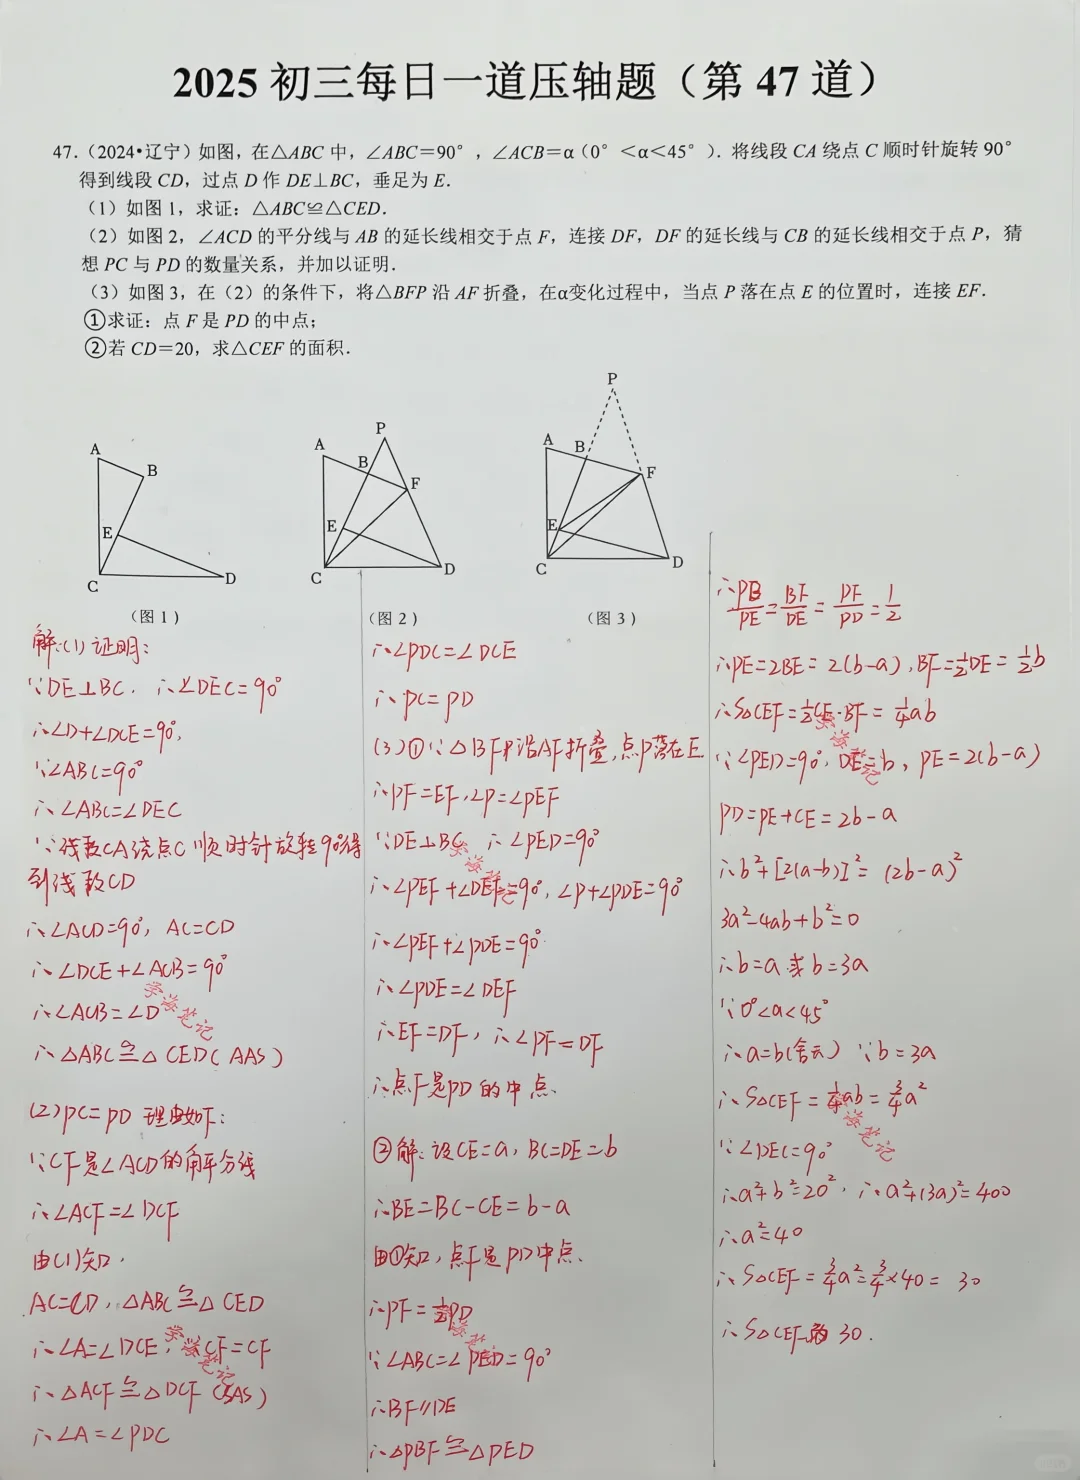 2025 初三每日一道压轴题（第 47 道）
47.（2024•辽宁）如图，在△ABC 中，∠ABC＝90°，∠ACB＝α（0°＜α＜45°）. 将线段 CA 绕点 C 顺时针旋转 90°
得到线段 CD，过点 D 作 DE⊥BC，垂足为 E.
（1）如图 1，求证：△ABC≌△CED.
（2）如图 2，∠ACD 的平分线与 AB 的延长线相交于点 F，连接 DF，DF 的延长线与 CB 的延长线相交于点 P，猜
想 PC 与 PD 的数量关系，并加以证明.
（3）如图 3，在（2）的条件下，将△BFP 沿 AF 折叠，在α变化过程中，当点 P 落在点 E 的位置时，连接 EF.
①求证：点 F 是 PD 的中点；
②若 CD＝20，求△CEF 的面积.
A
B
E
C
D
（图 1）
P
A
B
F
E
C
D
（图 2）
P
A
B
F
E
C
D
（图 3）
解:(1)证明:
∵DE⊥BC. ∴∠DEC=90°
∴∠D+∠DCE=90°,
∵∠ABC=90°
∴∠ABC=∠DEC
∵线段CA绕点C顺时针旋转90°得
到线段CD
∴∠ACD=90°, AC=CD
∴∠DCE+∠ACB=90°
∴∠ACB=∠D
∴△ABC≌△CED(AAS)
(2)PC=PD 理由如下:
∵CF是∠ACD的角平分线
∴∠ACF=∠DCF
由(1)知,
AC=CD, △ABC≌△CED
∴∠A=∠DCE, CF=CF
∴△ACF≌△DCF (SAS)
∴∠A=∠PDC
∴∠PDC=∠DCE
∴PC=PD
(3)①∵△BFP沿AF折叠,点P落在E
∴PF=EF,∠P=∠PEF
∵DE⊥BC ∴∠PED=90°
∴∠PEF+∠DEF=90°,∠P+∠PDE=90°
∴∠PEF+∠PDE=90°
∴∠PDE=∠DEF
∴EF=DF, ∴∠PF=DF
∴点F是PD的中点.
②解:设CE=a, BC=DE=b
∴BE=BC-CE=b-a
由①知,点F是PD中点.
∴PF=½PD
∵∠ABC=∠PED=90°
∴BF∥DE
∴△PBF≌△PED
∴PB/PE=BF/DE=PF/PD=1/2
∴PE=2BE=2(b-a),BF=½DE=½b
∴S△CEF=½CE·BF=¼ab
∵∠PED=90°, DE=b, PE=2(b-a)
PD=PE+CE=2b-a
∴b²+[2(a-b)]²=(2b-a)²
3a²-4ab+b²=0
∴b=a 或 b=3a
∵0°<α<45°
∴a=b(舍去) ∵b=3a
∴S△CEF=¼ab=¾a²
∵∠DEC=90°
∴a²+b²=20², ∴a²+(3a)²=400
∴a²=40
∴S△CEF=¾a²=¾×40=30
∴S△CEF为30.
学海笔记
学海笔记
学海笔记
学海笔记
学海笔记
学海笔记